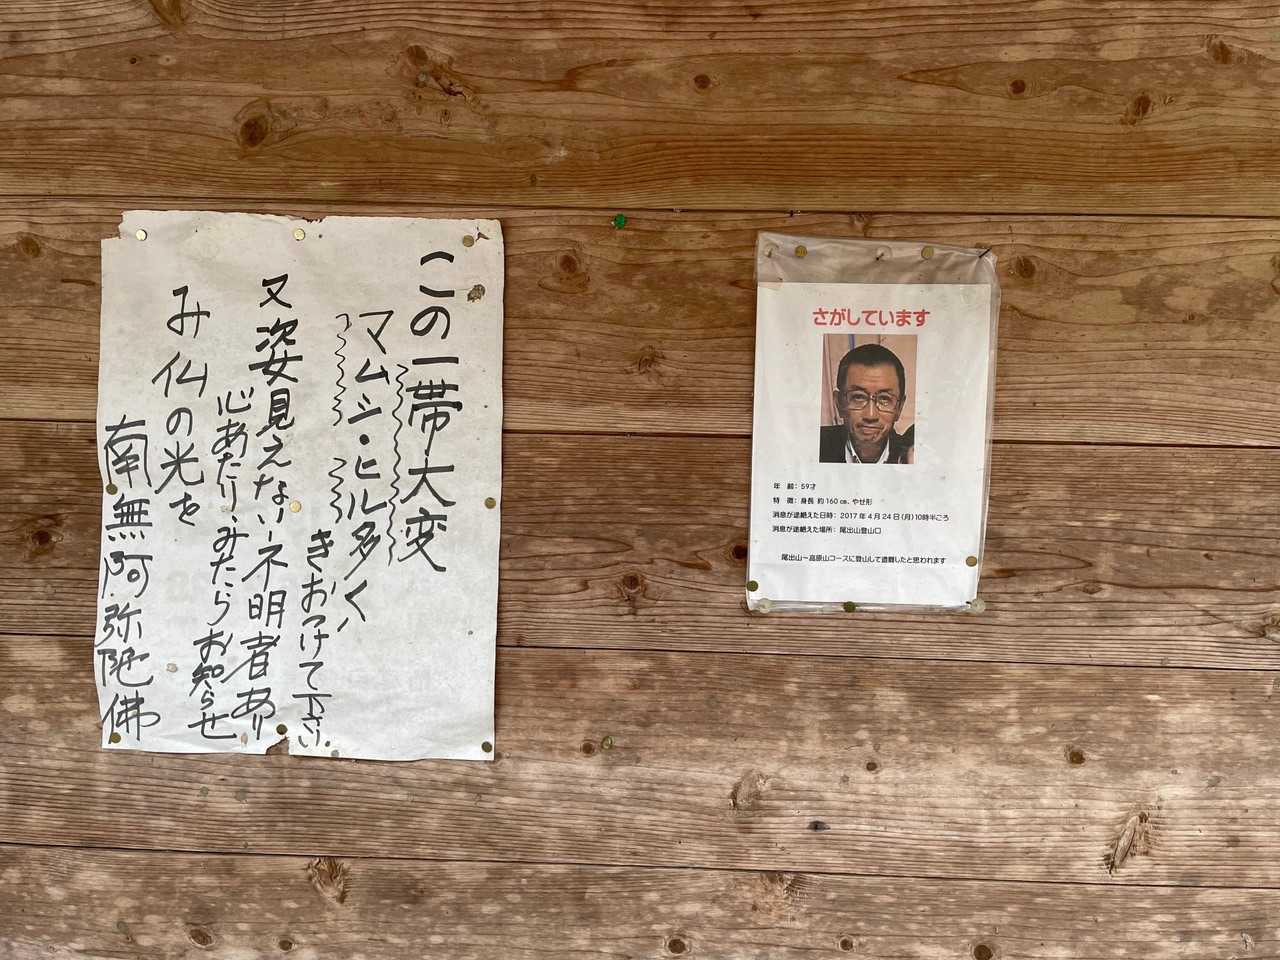 この一帯大変
マムシ・ヒル多く、
きおつけて下さい。
又姿見えない不明者あり
心あたり、みたらお知らせ
み仏の光を
南無阿弥陀佛
さがしています
年 齢：59才
特 徴：身長 約160㎝、やせ形
消息が途絶えた日時：2017年4月24日(月)10時半ころ
消息が途絶えた場所：尾出山登山口
尾出山～高原山コースに登山して遭難したと思われます